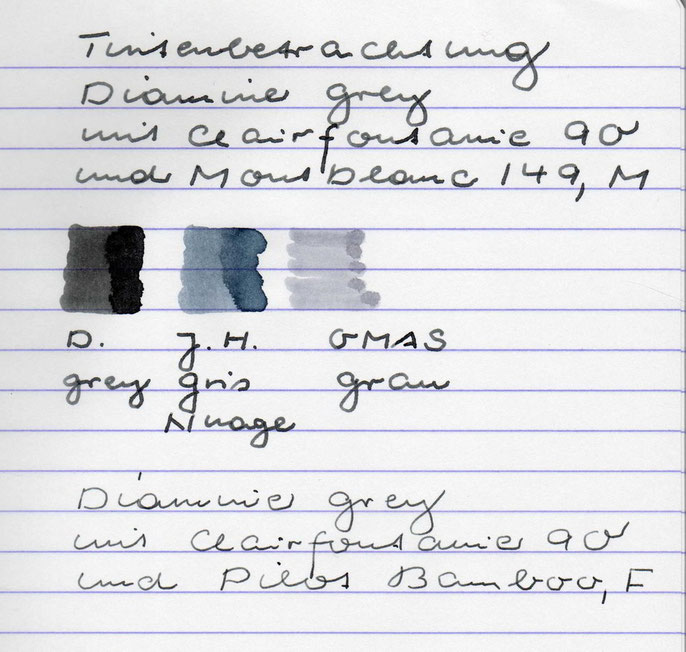 Tintenbetrachtung
Diamine grey
mit Clairfontaine 90
und Montblanc 149, M
D. J. H. OMAS
grey gris grau
Nuage
Diamine grey
mit Clairfontaine 90
und Pilot Bamboo, F